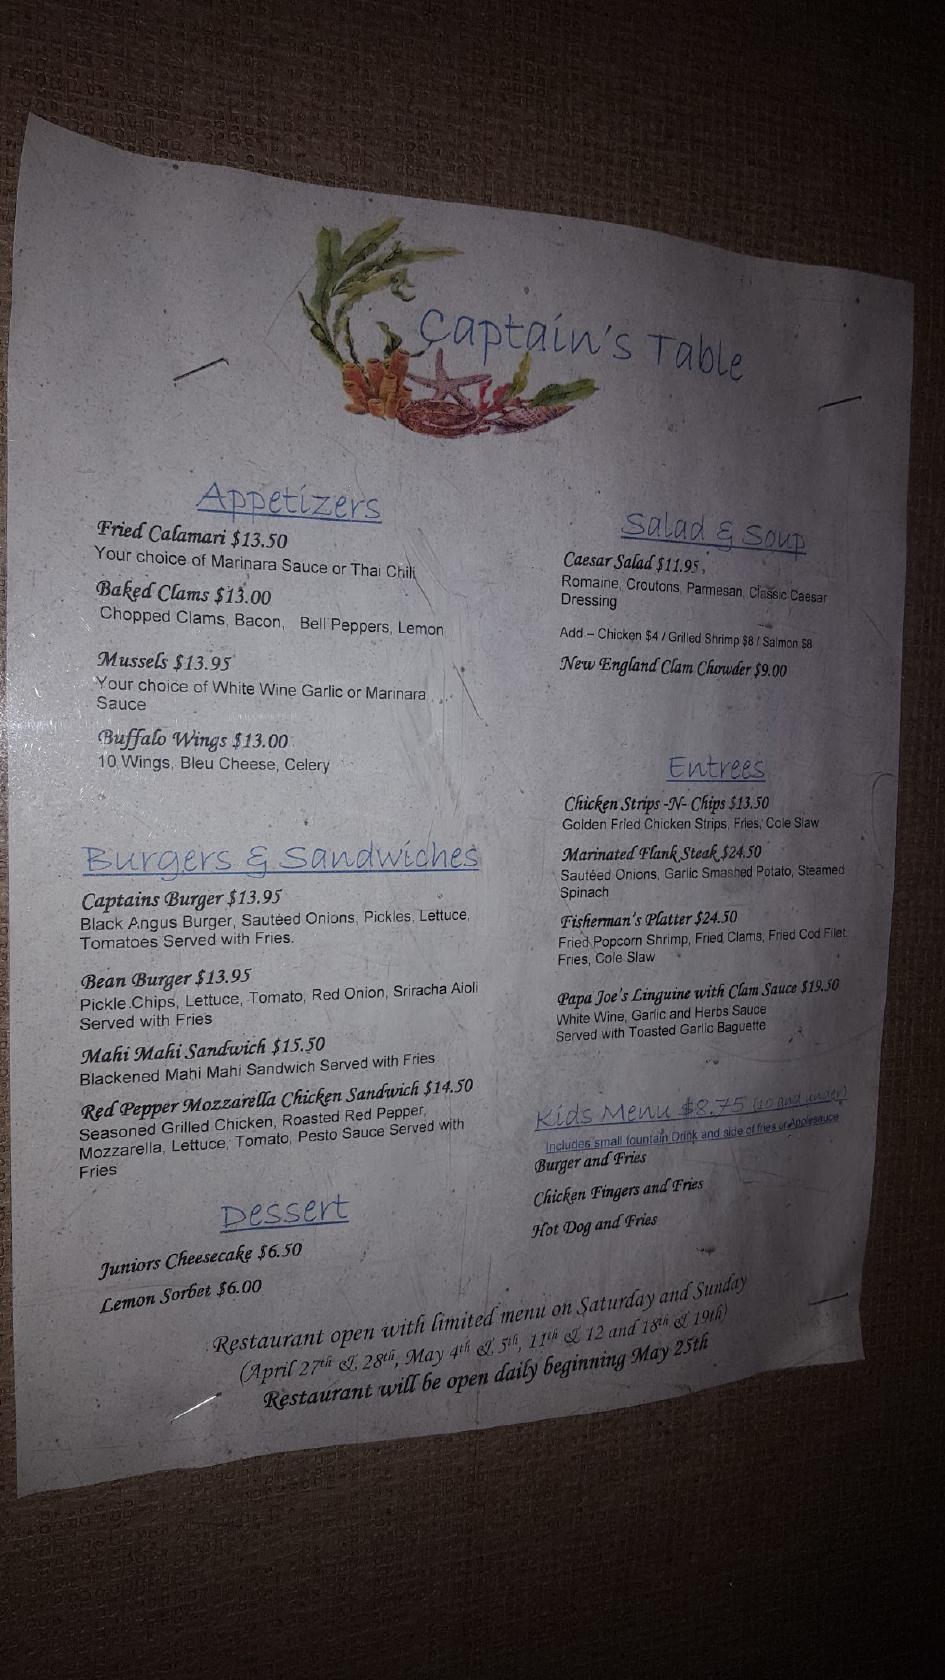 Captain's Table
Appetizers
Fried Calamari $13.50
Your choice of Marinara Sauce or Thai Chili
Baked Clams $13.00
Chopped Clams, Bacon, Bell Peppers, Lemon
Mussels $13.95
Your choice of White Wine Garlic or Marinara
Sauce
Buffalo Wings $13.00
10 Wings, Bleu Cheese, Celery
Burgers & Sandwiches
Captains Burger $13.95
Black Angus Burger, Sautéed Onions, Pickles, Lettuce,
Tomatoes Served with Fries.
Bean Burger $13.95
Pickle Chips, Lettuce, Tomato, Red Onion, Sriracha Aioli
Served with Fries
Mahi Mahi Sandwich $15.50
Blackened Mahi Mahi Sandwich Served with Fries
Red Pepper Mozzarella Chicken Sandwich $14.50
Seasoned Grilled Chicken, Roasted Red Pepper,
Mozzarella, Lettuce, Tomato, Pesto Sauce Served with
Fries
Dessert
Juniors Cheesecake $6.50
Lemon Sorbet $6.00
Salad & Soup
Caesar Salad $11.95
Romaine, Croutons, Parmesan, Classic Caesar
Dressing
Add – Chicken $4 / Grilled Shrimp $8 / Salmon $8
New England Clam Chowder $9.00
Entrees
Chicken Strips -N- Chips $13.50
Golden Fried Chicken Strips, Fries, Cole Slaw
Marinated Flank Steak $24.50
Sautéed Onions, Garlic Smashed Potato, Steamed
Spinach
Fisherman's Platter $24.50
Fried Popcorn Shrimp, Fried Clams, Fried Cod Filet,
Fries, Cole Slaw
Papa Joe's Linguine with Clam Sauce $19.50
White Wine, Garlic and Herbs Sauce
Served with Toasted Garlic Baguette
Kids Menu $8.75 (10 and under)
Includes small fountain Drink and side of fries or Applesauce
Burger and Fries
Chicken Fingers and Fries
Hot Dog and Fries
Restaurant open with limited menu on Saturday and Sunday
(April 27th & 28th, May 4th & 5th, 11th & 12 and 18th & 19th)
Restaurant will be open daily beginning May 25th